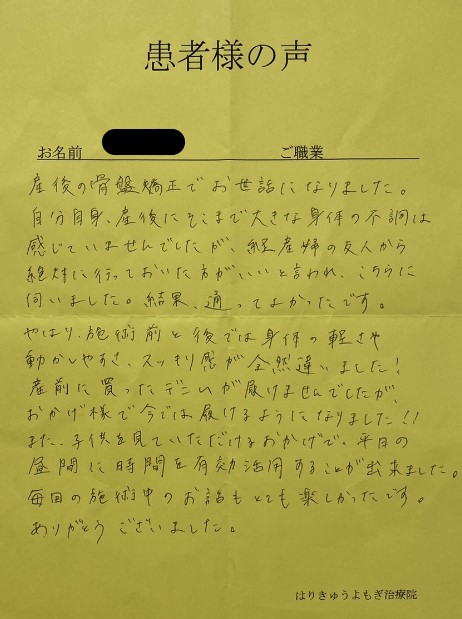 患者様の声
お名前 ご職業
産後の骨盤矯正でお世話になりました。
自分自身、産後にそこまで大きな身体の不調は
感じていませんでしたが、経産婦の友人から
絶対に行っておいた方がいいと言われ、こちらに
伺いました。結果、通ってよかったです。
やはり、施術前と後では身体の軽さや
動かしやすさ、スッキリ感が全然違いました!
産前に買ったデニムが履けませんでしたが、
おかげ様で今では履けるようになりました!!
また、子供を見ていただけるおかげで、平日の
昼間に時間を有効活用することが出来ました。
毎回の施術中のお話もとても楽しかったです。
ありがとうございました。
はりきゅうよもぎ治療院